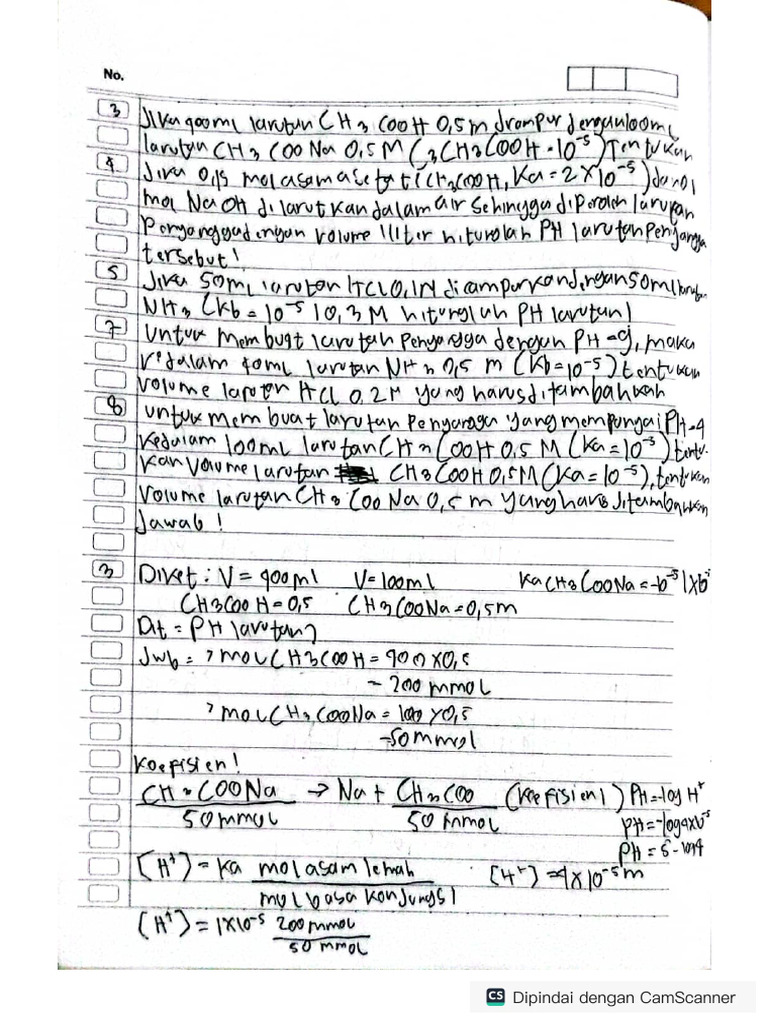 No.
3 Jika 400ml larutan CH3 COOH 0,5 m dicampur dengan 100ml
larutan CH3 COO Na 0,5 M ( CH3COOH = 10-5) Tentukan
4 Jika 0,15 mol asam asetat (CH3COOH, Ka = 2 x 10-5) dan 0,1
mol NaOH dilarutkan dalam air sehingga diperoleh larutan
Penyangga dengan volume 1 liter hitunglah PH larutan Penyangga
tersebut!
5 Jika 50ml larutan HCl 0,1M dicampurkan dengan 50ml larutan
NH3 (Kb = 10-5) 0,3 M hitunglah PH larutan!
7 Untuk membuat larutan Penyangga dengan PH = 9, maka
kedalam 40ml larutan NH3 0,5 m (Kb = 10-5) tentukan
Volume larutan HCl 0,2M yang harus ditambahkan
8 Untuk membuat larutan Penyangga yang mempunyai PH = 4
Kedalam 100ml larutan CH3 COOH 0,5 M (Ka = 10-5) tentu-
kan Volume larutan CH3COOH 0,5M (Ka = 10-5), tentukan
Volume larutan CH3 COO Na 0,5 m yang harus ditambahkan
Jawab!
3 Diket : V = 400ml V = 100ml Ka CH3COONa = 10-5 1x10-5
CH3COOH = 0,5 CH3COONa = 0,5m
Dit = PH larutan?
Jwb = > mol CH3COOH = 400 x 0,5
= 200 mmol
> mol CH3COONa = 100 x 0,5
= 50 mmol
Koefisien!
CH3COONa → Na + CH3COO (Koefisien 1) PH = -log H+
50 mmol 50 mmol PH = -log 4x10-5
PH = 5 - log 4
[H+] = Ka mol asam lemah [H+] = 4 x 10-5 m
mol basa konjungsi
[H+] = 1x10-5 200 mmol
50 mmol
CS Dipindai dengan CamScanner